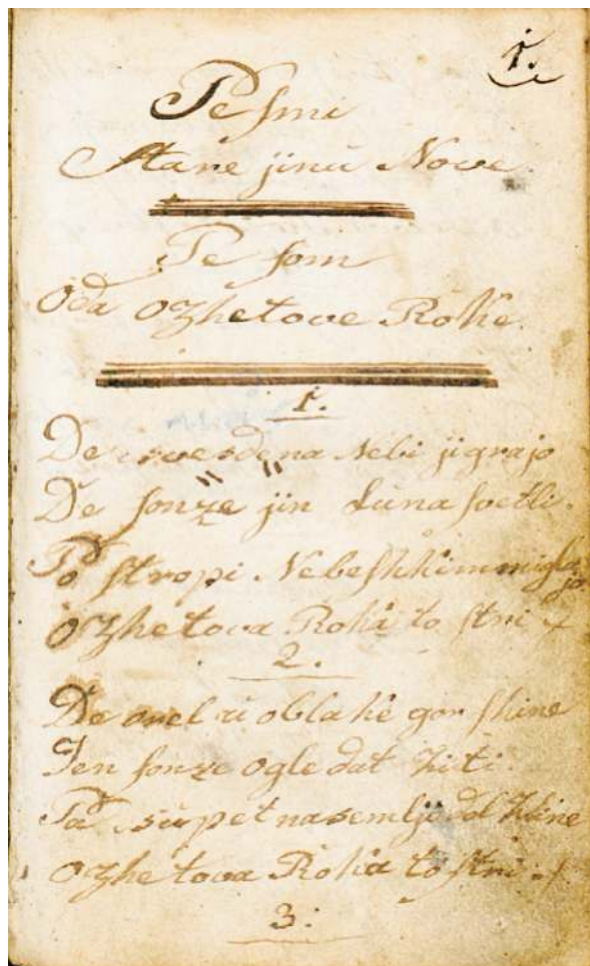 1.
Pesmi
Stare jinu Nove.
Pe ſom
Oda Ozhetove Roke.
1.
De svesde na Nebi jigrajo
De ſonze jin Luna ſvetli.
Po ſtropi Nebeſhkim migla
jo
Ozhetova Roka to ſtri
2.
De orel u oblake gor ſhine
Jen ſonze ogledat hiti.
Pa supet na semljo dol Shine
Ozhetova Roka to ſtri
3: